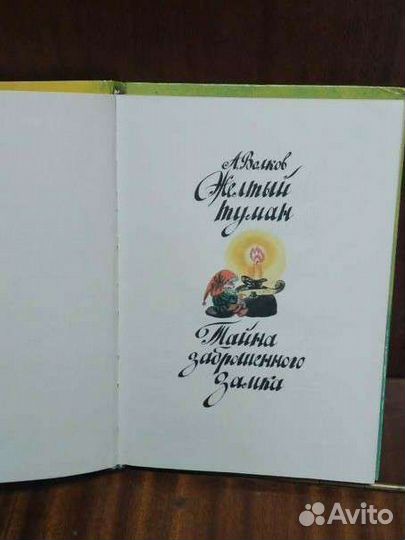 А. Волков
Желтый
туман
Тайна
заброшенного
замка
Avito